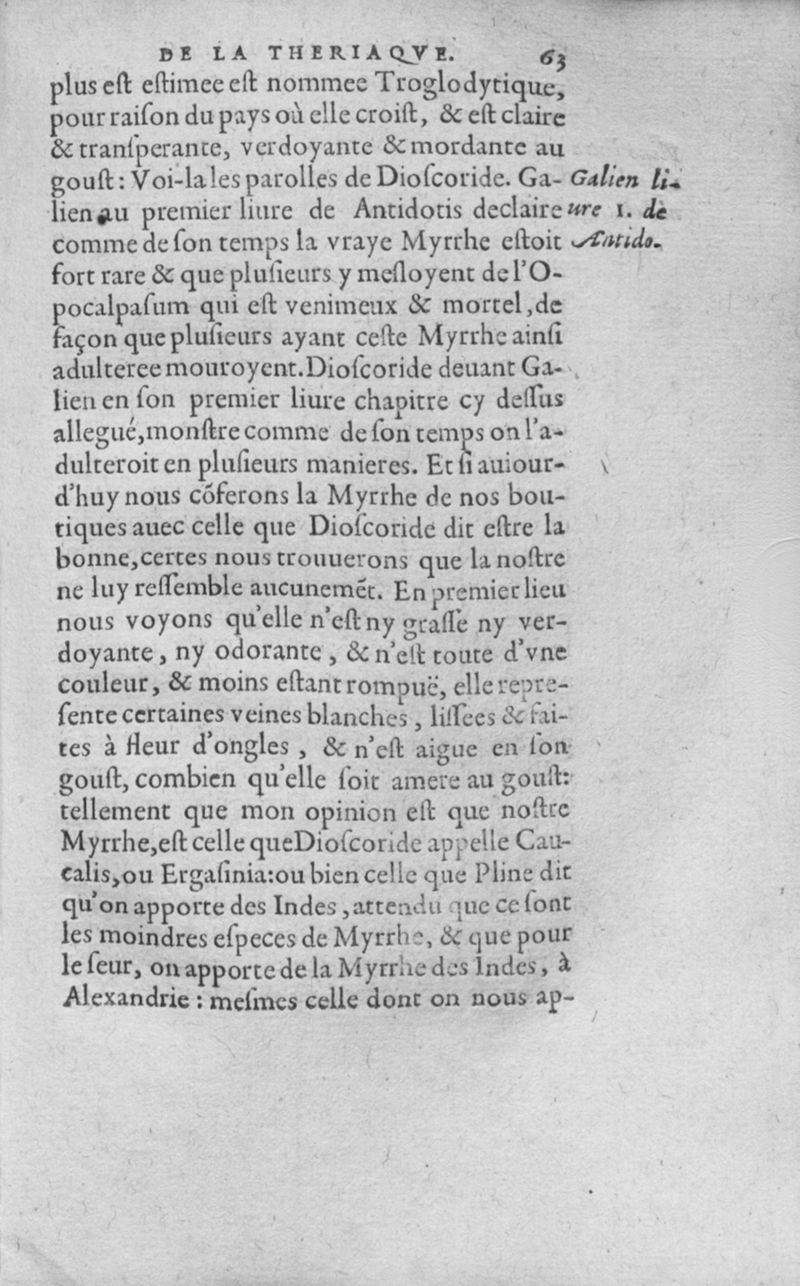 DE LA THERIAQVE. 63
plus eſt eſtimee eſt nommee Troglodytique,
pour raiſon du pays où elle croiſt, & eſt claire
& tranſperante, verdoyante & mordante au
gouſt: Voi-la les parolles de Dioſcoride. Ga-
lien au premier liure de Antidotis declaire
comme de ſon temps la vraye Myrrhe eſtoit
fort rare & que pluſieurs y meſloyent de l'O-
pocalpaſum qui eſt venimeux & mortel, de
façon que pluſieurs ayant ceſte Myrrhe ainſi
adulteree mouroyent. Dioſcoride deuant Ga-
lien en ſon premier liure chapitre cy deſſus
allegué, monſtre comme de ſon temps on l'a-
dulteroit en pluſieurs manieres. Et ſi auiour-
d'huy nous cõferons la Myrrhe de nos bou-
tiques auec celle que Dioſcoride dit eſtre la
bonne, certes nous trouuerons que la noſtre
ne luy reſſemble aucunemẽt. En premier lieu
nous voyons qu'elle n'eſt ny graſſe ny ver-
doyante, ny odorante, & n'eſt toute d'vne
couleur, & moins eſtant rompuë, elle repre-
ſente certaines veines blanches, liſſees & fai-
tes à fleur d'ongles, & n'eſt aigue en ſon
gouſt, combien qu'elle ſoit amere au gouſt:
tellement que mon opinion eſt que noſtre
Myrrhe, eſt celle que Dioſcoride appelle Cau-
calis, ou Ergaſinia: ou bien celle que Pline dit
qu'on apporte des Indes, attendu que ce ſont
les moindres eſpeces de Myrrhe, & que pour
le ſeur, on apporte de la Myrrhe des Indes, à
Alexandrie: meſmes celle dont on nous ap-
Galien li-
ure 1. de
Antido.